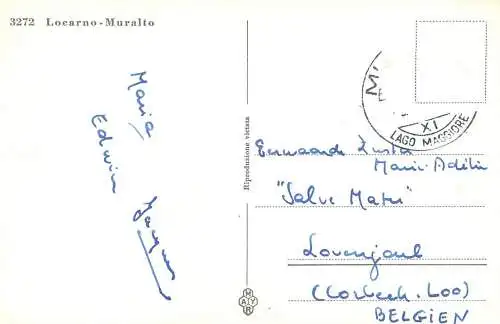 3272 Locarno - Muralto
Maria
Edwin
Jacques
Riproduzione vietata
MAYR
XI
LAGO MAGGIORE
Eerwaarde Zuster
Marie-Adèle
"Salve Mater"
Lovenjoul
(Corbeek-Loo)
BELGIEN